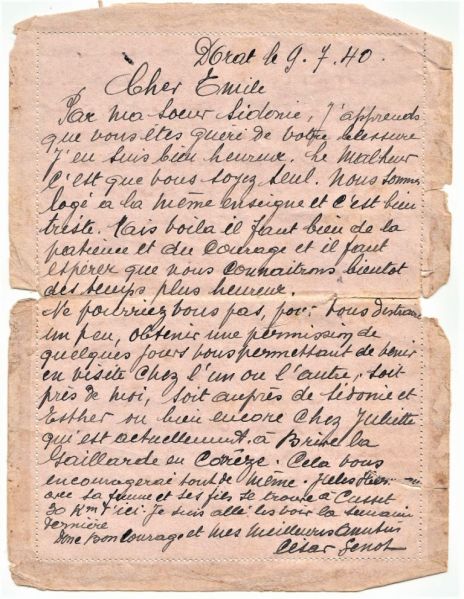 Dorat le 9.7.40.
Cher Emile
Par ma soeur Sidonie, j'apprends
que vous êtes guéri de votre blessure
J'en suis bien heureux. Le malheur
c'est que vous soyez seul. Nous sommes
logé à la même enseigne et c'est bien
triste. Mais voila il faut bien de la
patience et du courage et il faut
espérer que nous connaitrons bientot
des temps plus heureux.
Ne pourriez vous pas, pour vous distraire
un peu, obtenir une permission de
quelques jours vous permettant de venir
en visite chez l'un ou l'autre, soit
près de moi, soit auprès de Sidonie et
Esther ou bien encore chez Juliette
qui est actuellement à Brive la
Gaillarde en Corèze. Cela vous
encouragerai tout de même. Jules
avec sa femme et ses fils se trouve à Cusset
30 Km d'ici. Je suis allé les voir la semaine
dernière
Donc bon courage et mes meilleures amitiés
César Genot